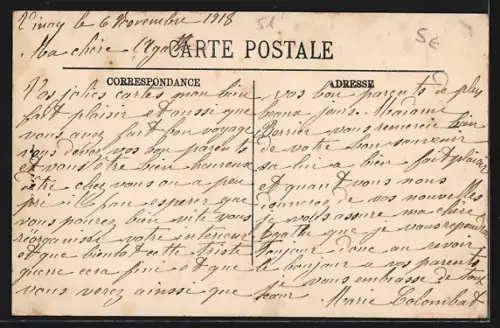 Vinay le 6 Novembre 1918
5€
Ma chère Agathe
CARTE POSTALE
CORRESPONDANCE
ADRESSE
Vos jolies cartes mon bien
fait plaisir et aussi que
vous avez fait bon voyage
vous devez vos bon parents
et vous être bien heureux
être chez vous ou a peu
pri il faut esperer que
vous pourez bien vite vous
réorganisé votre interieur
et que bientot cette triste
guerre cera fini et que
vous verez ainsie que
vos bon parents de plus
beaux jours. Madame
vous remercie bien
de votre bon souvenir
sa lui a bien fait plaisir
et quant vous nous
donnerez de vos nouvelles
je vous assure ma chère
Agathe que je vous repondrai
toujour donc au revoir
le bonjour a vos parents
je vous embrasse de tout
cœur Marie Colombat